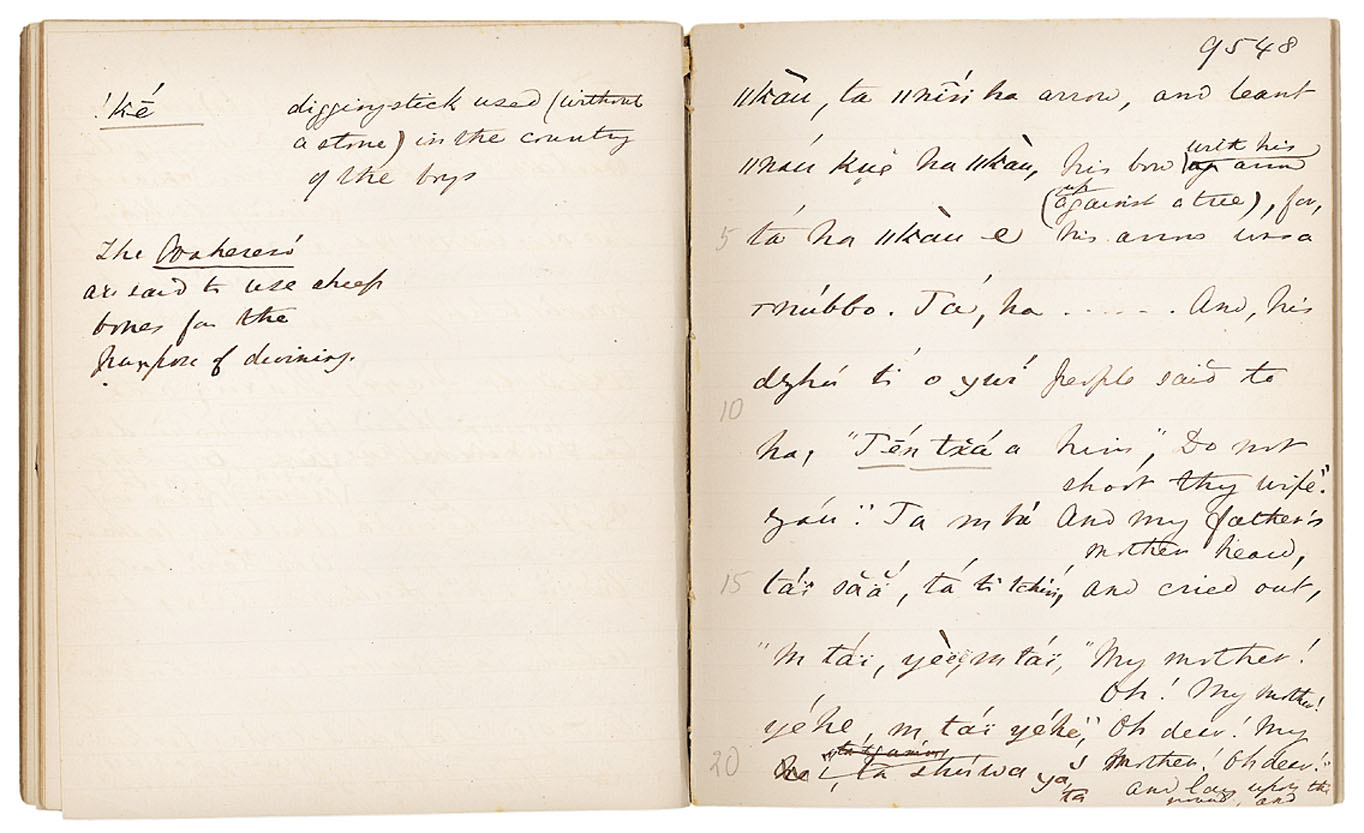 !ké
diggingstick used (without
a stone) in the country
of the boys
The
are said to use sheep
bones for the
purpose of divining.
9548
ǁkàu, ta ǁnı̃́si ha arrow, and leant
ǁnáu kuẹ̈ ha ǁkàu, his bow (with his
arm
up
(against a tree), for,
5 tá ha ǁkàu e his arms was a
núbbo. Tá, ha . . . . . . And, his
dzhú tí o ywí people said to
10
ha, "Tén txá a him, "Do not
shoot thy wife."
záu". Ta m bá And my father's
mother heard,
15 táï sắắ, tá tí tchí, and cried out,
"M táï, yèë, m táï, "My mother!
Oh! My mother!
yéhe, m táï yéhé", Oh dear! My
20 ta shúwa ya, Mother! Oh dear!"
ta and lay upon the
ground, and